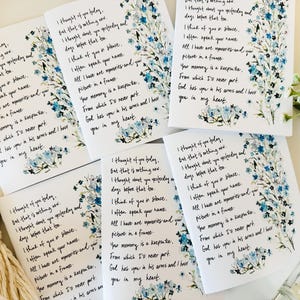 I thought of you today,
But that is nothing new
I thought about you yesterday and
days before that too.
I think of you in silence,
I often speak your name.
All I have are memories and your
picture in a frame.
Your memory is a keepsake,
From which I'll never part
God has you in his arms and I have
you in my heart.
I thought of you today,
But that is nothing new
I thought about you yesterday and
days before that too.
I think of you in silence,
I often speak your name.
All I have are memories and your
picture in a frame.
Your memory is a keepsake,
From which I'll never part
God has you in his arms and I have
you in my heart.
But that is nothing new
I thought about you yesterday and
days before that too.
I think of you in silence,
I often speak your name.
All I have are memories and your
picture in a frame.
Your memory is a keepsake,
From which I'll never part
God has you in his arms and I have
you in my heart.
I thought of you today,
But that is nothing new
I thought about you yesterday and
days before that too.
I think of you in silence,
I often speak your name.
All I have are memories and your
picture in a frame.
Your memory is a keepsake,
I thought of you today,
But that is nothing new
I thought about you yesterday and
days before that too.
I think of you in silence,
I often speak your name.
All I have are memories and your
picture in a frame.
Your memory is a keepsake,
From which I'll never part
I thought of you today,
But that is nothing new
I thought about you yesterday and
days before that too.
I think of you in silence,
I often speak your name.
All I have are memories and your
picture in a frame.
Your memory is a keepsake,
From which I'll never part
God has you in his arms and I have
you in my heart.